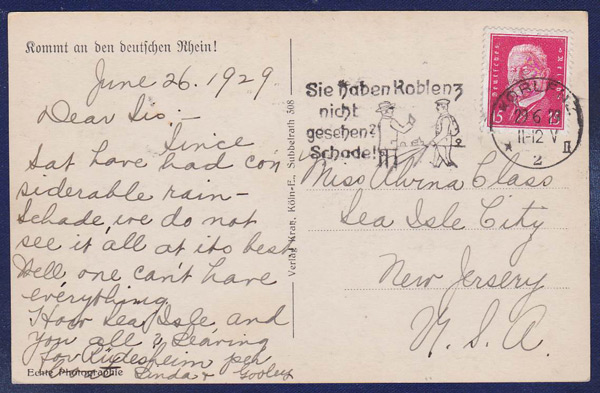 Kommt an den deutschen Rhein!
June 26. 1929
Dear Sis. —
Since
Sat have had con
siderable rain —
Schade, we do not
see it all at its best
Well one can't have
everything
How Sea Isle and
you all? Leaving
for Rüdesheim
Linda +
Echte Photographie
Verlag Krau, Köln-E., Subbelrath 508
Sie haben Koblenz
nicht
gesehen?
Schade!
Deutsches Reich
15
KOBLENZ
6 29
11-12 V
* 2 II
Miss Alvina Class
Sea Isle City
New Jersery
U. S. A.